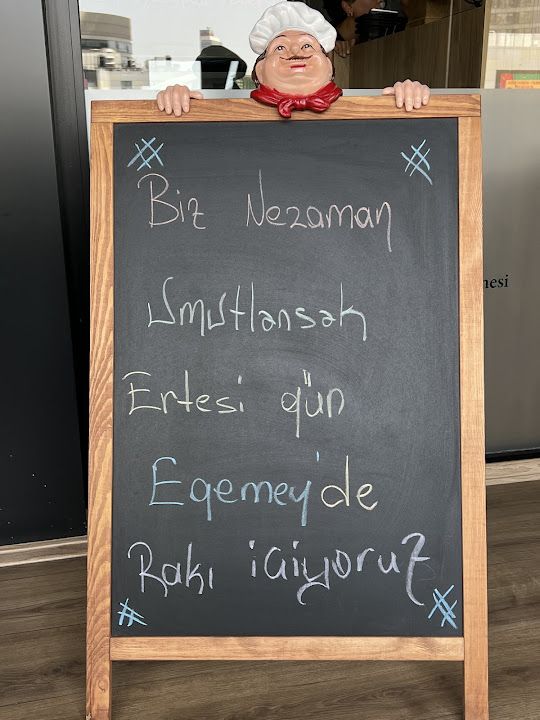 Biz Nezaman
Umutlansak
Ertesi gün
Egemey'de
Rakı içiyoruz
nesi